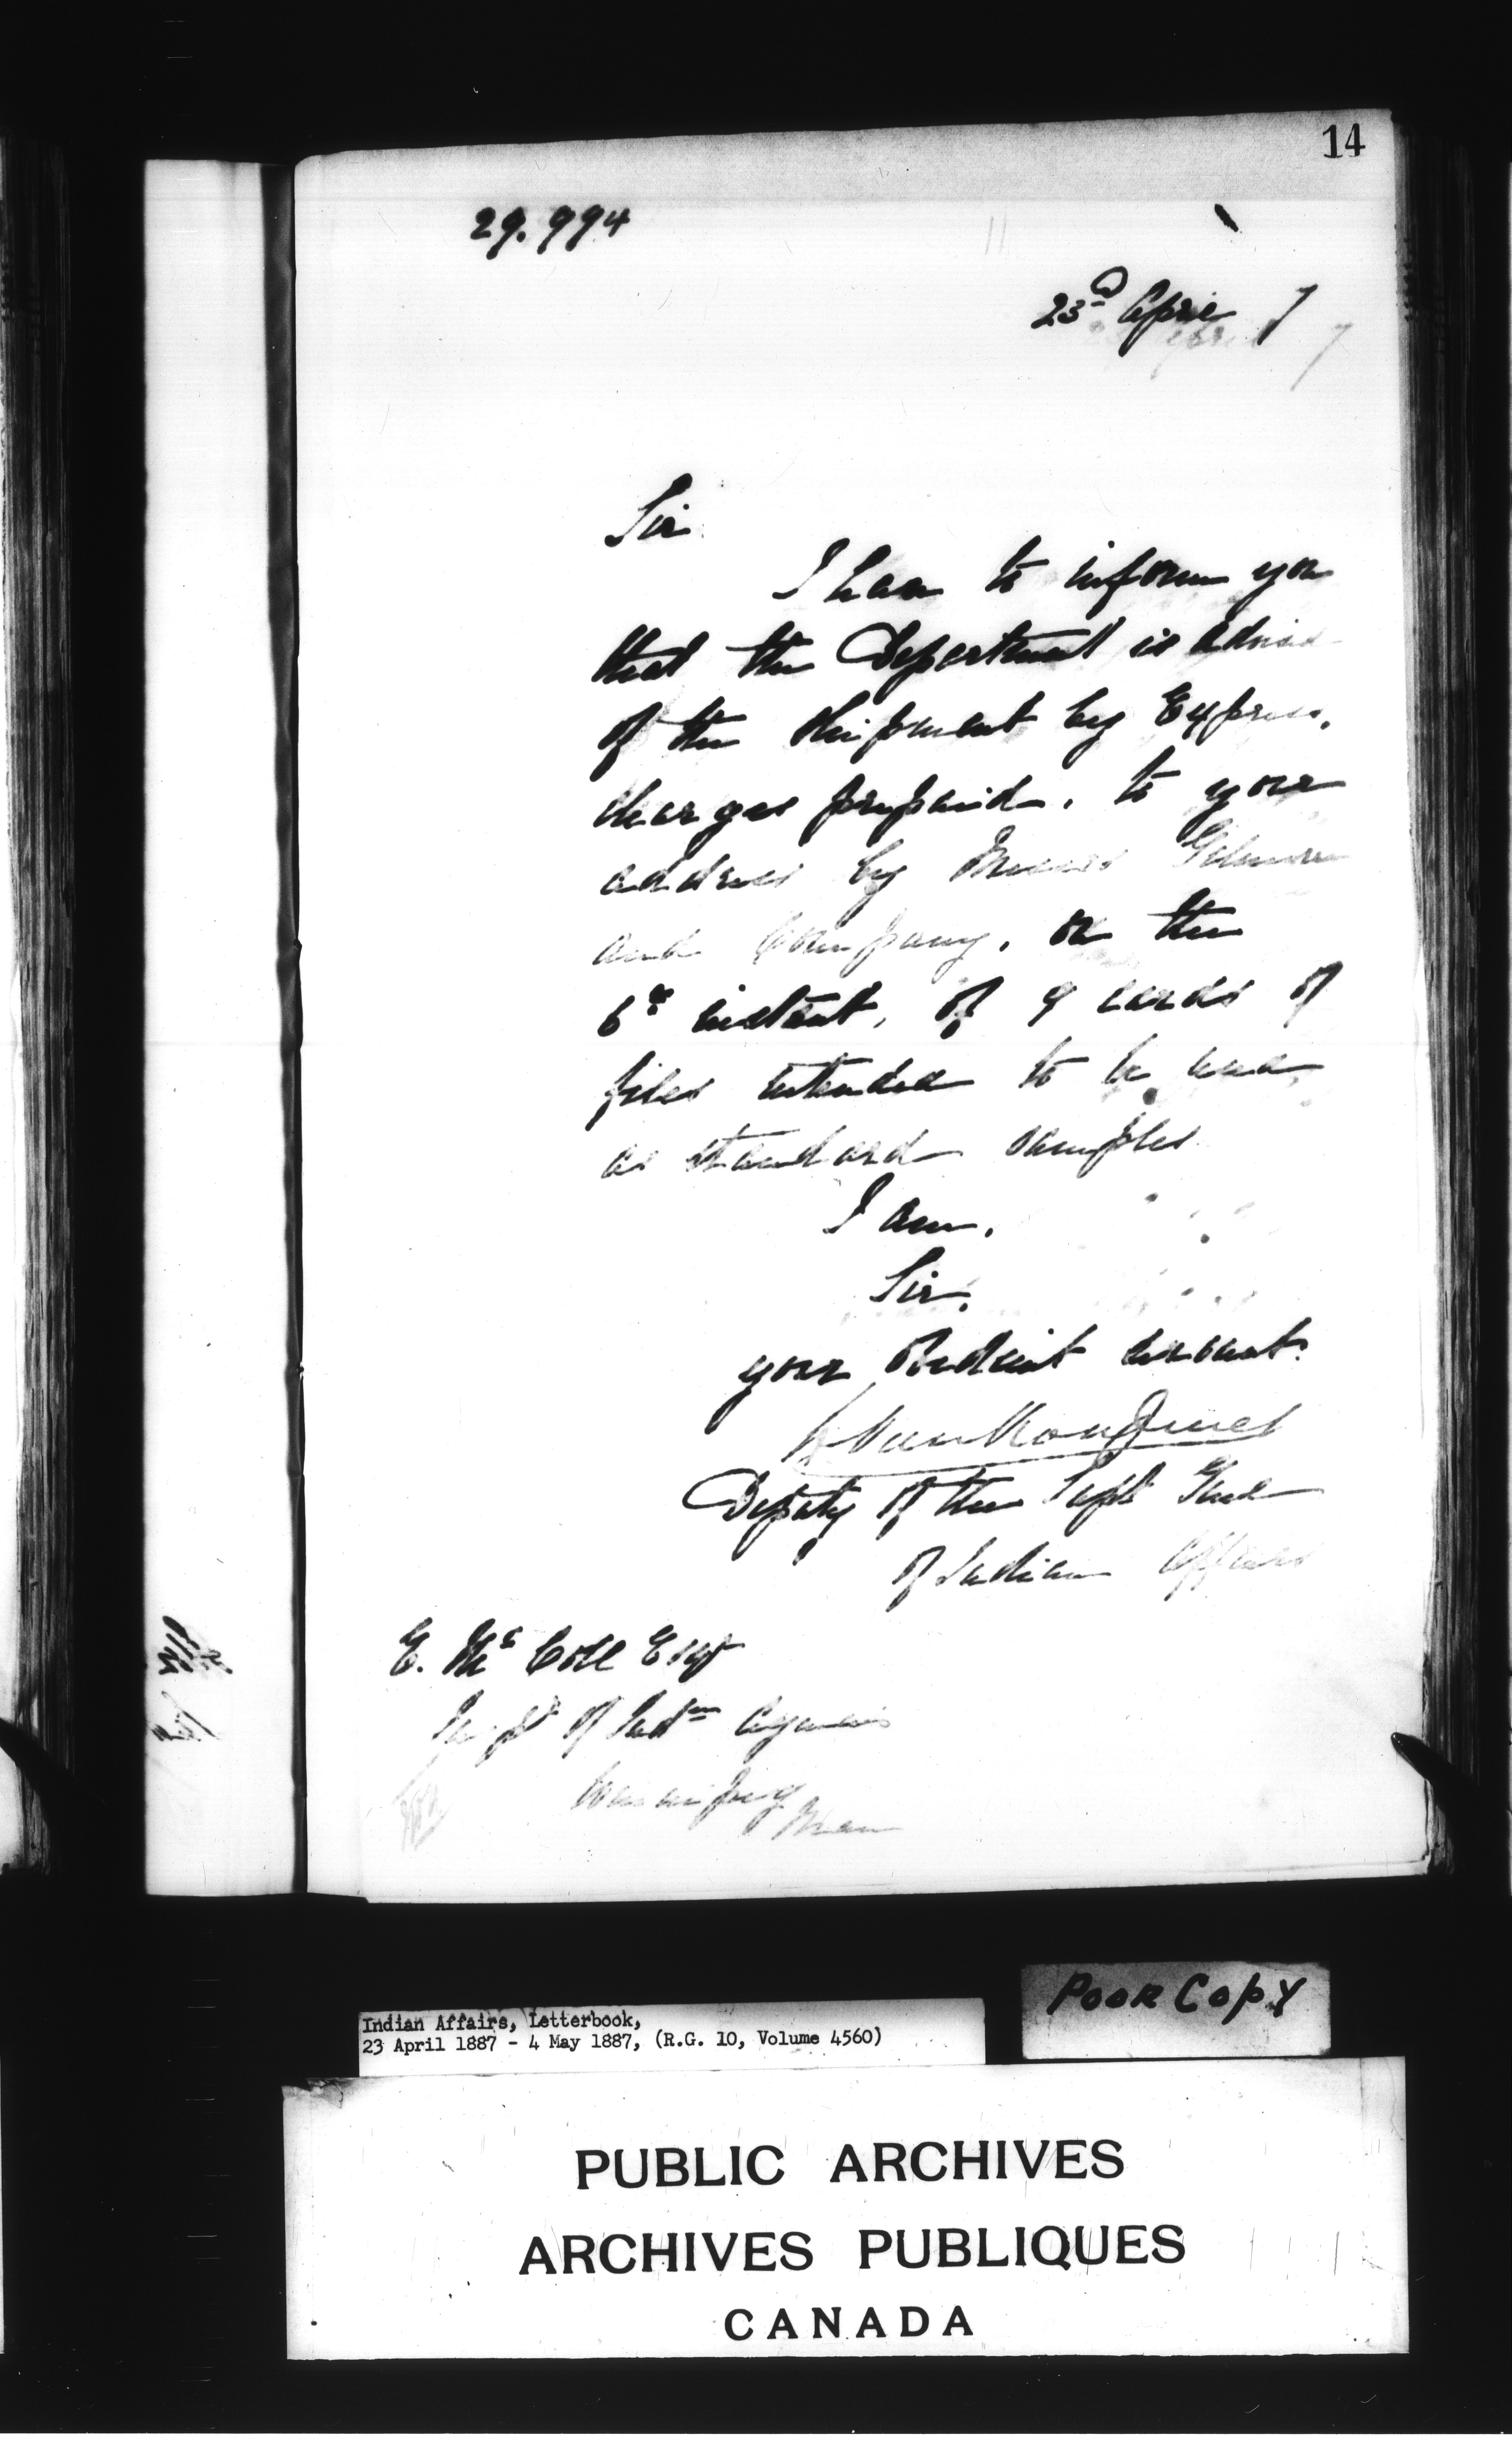 14
29.994
23d April 7
Sir
I have to inform you
that the Department is advised
of the shipment by Express,
charges prepaid, to your
address by Messrs Gilmour
and Company, on the
6th instant, of 9 cards of
files intended to be used
as standard samples
I am,
Sir,
your obedient servant.
L. VanKoughnet
Deputy of the Supt Genl
of Indian Affairs
E. McColl Esqr
Inspr of Indn Agencies
Winnipeg
Man
Poor Copy
Indian Affairs, Letterbook,
23 April 1887 - 4 May 1887, (R.G. 10, Volume 4560)
PUBLIC ARCHIVES
ARCHIVES PUBLIQUES
CANADA